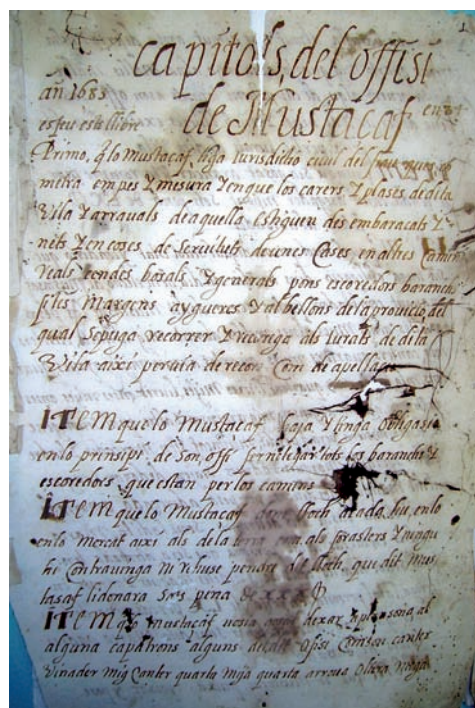 capitols, del offisi
añ 1683
de Mustaçaf
esfeu este llibre
Primo, q̃ lo Mustaçaf, haja Iurisdictio ciuil del
metra em pes y mesura y en que los carers y plases de dita
Vila y arrauals de aquella estiguen des embaracats y
nets y en coses de seruituts de unes Cases en altres Camins
reals sendes basals y generals pons escoredors baranchs
filis Margens aygueres y albellons de la prouicio del
qual Sepuga recorrer y recorrega als Iurats de dita
Vila aixi per via de recors Com de apellasio
ITEM que lo Mustaçaf haja y tinga obligasio
en lo prinsipi de son offi fer netegar tots los baranchs y
escoredors que estan per los camins
ITEM que lo Mustaçaf lloch a cada hu en lo
en lo Mercat aixi als de la terra com als forasters y ningu
hi Contrauinga ni nhuse pendre lloch que dit Mus
tasaf li donara Sots pena de xxx
ITEM q̃ lo mustaçaf dexar a persona al
alguna capatrons alguns de dit Ofisi Com son canter
Vinador mig Canter quarta Mija quarta arroua Oliera Mija